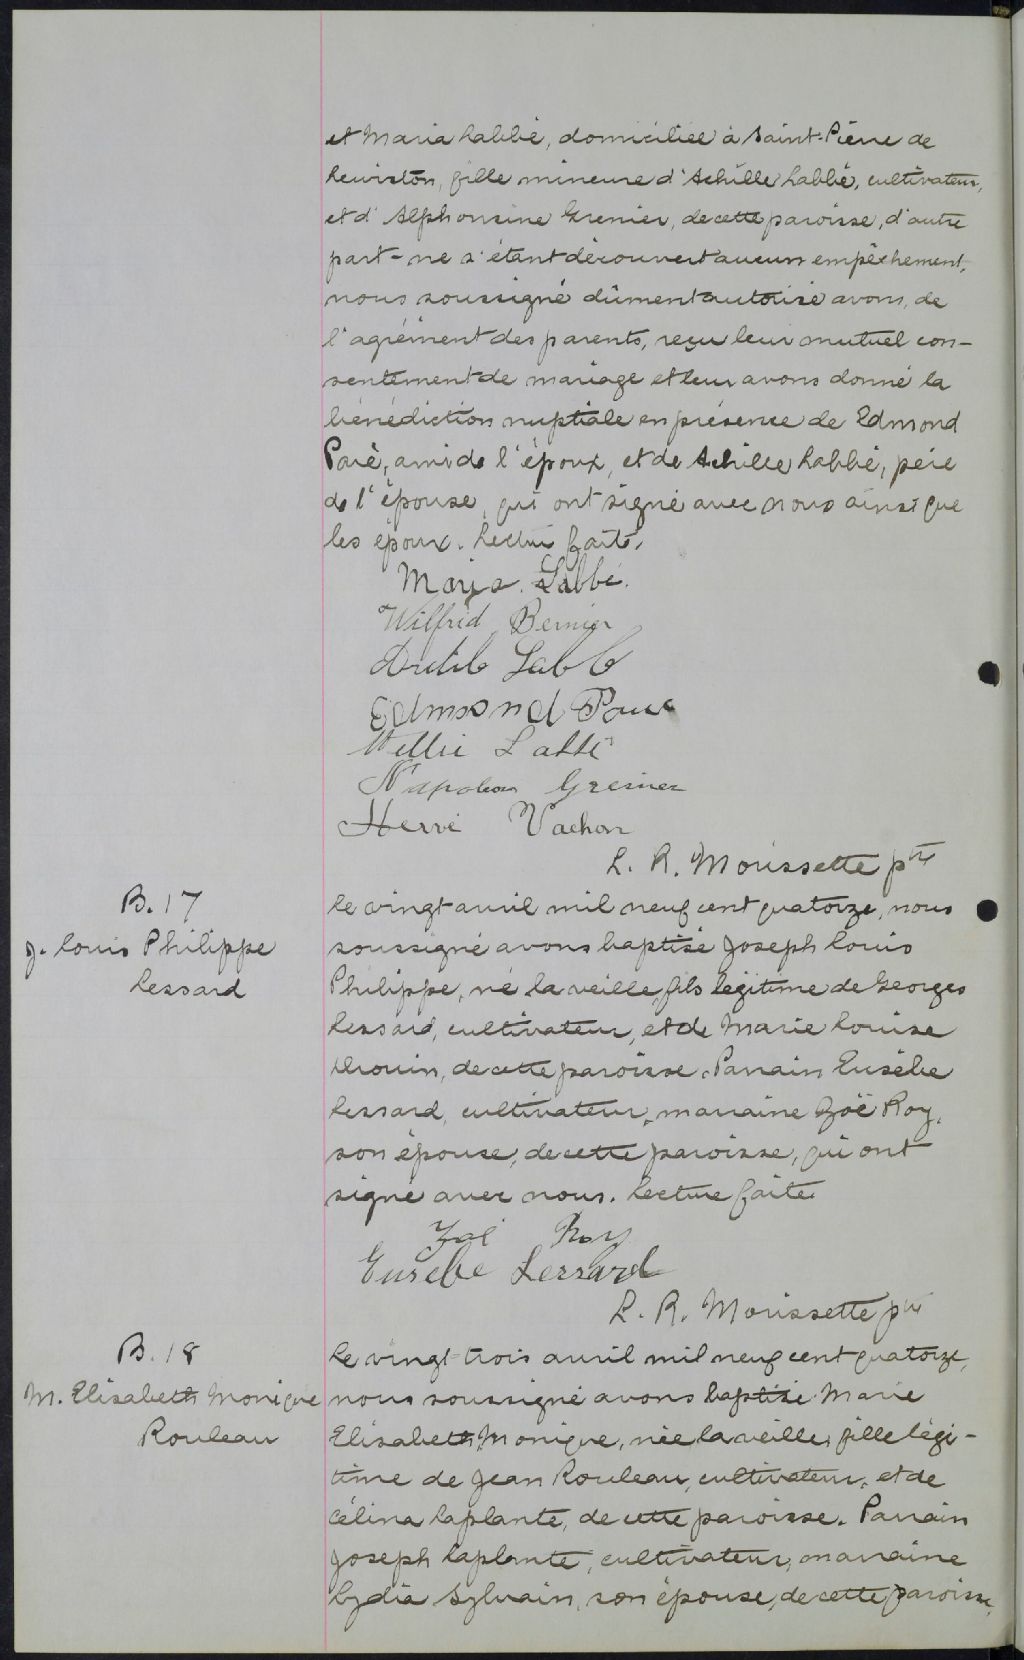 et Maria Labbé, domiciliée à Saint-Pierre de
Lewiston, fille mineure d'Achille Labbé, cultivateur,
et d'Alphonsine Grenier, de cette paroisse, d'autre
part - ne s'étant découvert aucun empêchement,
nous soussigné dûment autorisé avons, de
l'agrément des parents, reçu leur mutuel con-
sentement de mariage et leur avons donné la
bénédiction nuptiale en présence de Edmond
Paré, ami de l'époux, et de Achille Labbé, père
de l'épouse, qui ont signé avec nous ainsi que
les époux. Lecture faite.
Maria Labbé.
Wilfrid Bernier
Labbé
Edmond Paré
Willie Labbé
Napoleon Grenier
Hervé Vachon
L. R. Morissette ptre
B. 17
J. Louis Philippe
Lessard
Le vingt avril mil neuf cent quatorze, nous
soussigné avons baptisé Joseph Louis
Philippe, né la veille, fils légitime de Georges
Lessard, cultivateur, et de Marie Louise
Drouin, de cette paroisse. Parrain Eusèbe
Lessard, cultivateur, marraine Zoë Roy,
son épouse, de cette paroisse, qui ont
signé avec nous. Lecture faite.
Zoé Roy
Eusebe Lessard
L. R. Morissette ptre
B. 18
M. Elisabeth Monique
Rouleau
Le vingt-trois avril mil neuf cent quatorze,
nous soussigné avons baptisé Marie
Elisabeth Monique, née la veille, fille légi-
time de Jean Rouleau, cultivateur, et de
Célina Laplante, de cette paroisse. Parrain
Joseph Laplante, cultivateur, marraine
Lydia Sylvain, son épouse, de cette paroisse,